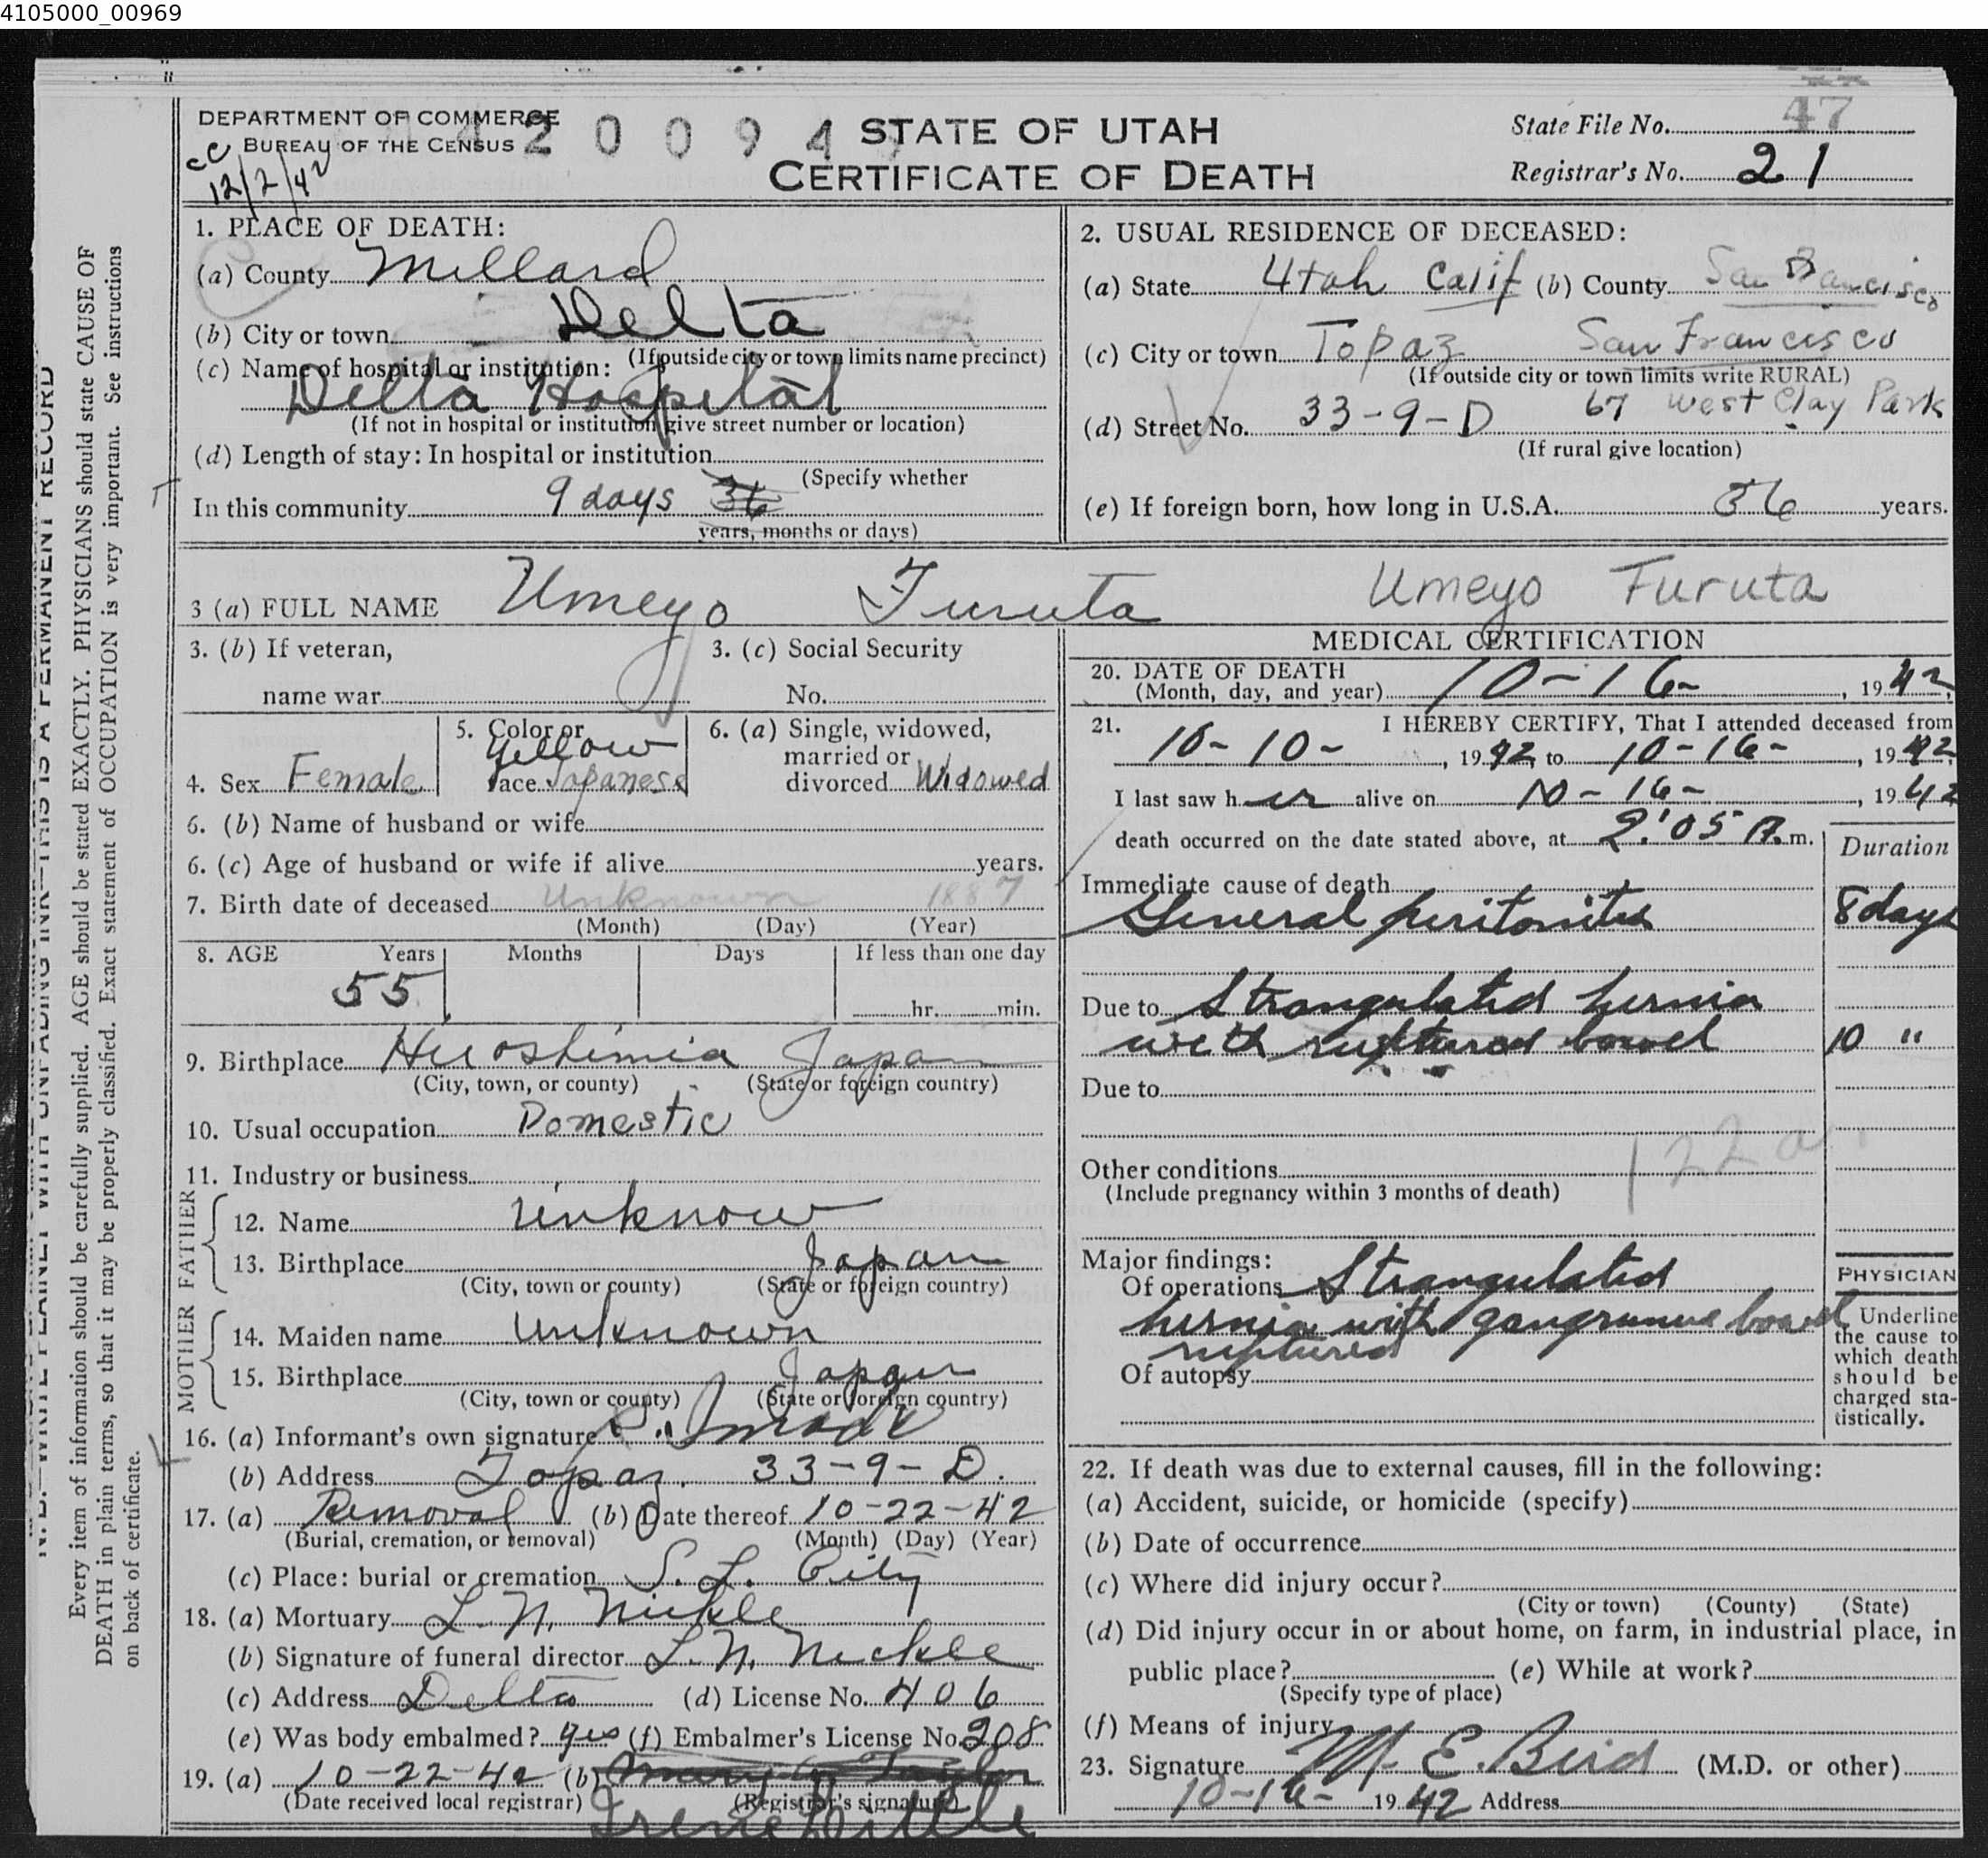 4105000_00969
DEPARTMENT OF COMMERCE
BUREAU OF THE CENSUS
420094
STATE OF UTAH
CERTIFICATE OF DEATH
State File No. 47
Registrar's No. 21
cc 12/2/42
1. PLACE OF DEATH:
(a) County Millard
(b) City or town Delta
(If outside city or town limits name precinct)
(c) Name of hospital or institution:
Delta Hospital
(If not in hospital or institution give street number or location)
(d) Length of stay: In hospital or institution
(Specify whether
In this community 9 days 36
years, months or days)
2. USUAL RESIDENCE OF DECEASED:
(a) State Utah Calif (b) County San Francisco
(c) City or town Topaz San Francisco
(If outside city or town limits write RURAL)
(d) Street No. 33-9-D 67 West Clay Park
(If rural give location)
(e) If foreign born, how long in U.S.A. 36 years.
3 (a) FULL NAME Umeyo Furuta Umeyo Furuta
3. (b) If veteran,
name war
3. (c) Social Security
No.
4. Sex Female
5. Color or
Yellow
race Japanese
6. (a) Single, widowed,
married or
divorced Widowed
6. (b) Name of husband or wife
6. (c) Age of husband or wife if alive years.
7. Birth date of deceased Unknown 1887
(Month) (Day) (Year)
8. AGE Years Months Days If less than one day
55 hr. min.
9. Birthplace Hiroshimia Japan
(City, town, or county) (State or foreign country)
10. Usual occupation Domestic
11. Industry or business
FATHER
12. Name Unknow
13. Birthplace Japan
(City, town or county) (State or foreign country)
MOTHER
14. Maiden name Unknown
15. Birthplace Japan
(City, town or county) (State or foreign country)
16. (a) Informant's own signature
(b) Address Topaz. 33-9-D.
17. (a) Removal (b) Date thereof 10-22-42
(Burial, cremation, or removal) (Month) (Day) (Year)
(c) Place: burial or cremation S. L. City
18. (a) Mortuary L. N. Nickle
(b) Signature of funeral director L. N. Nickle
(c) Address Delta (d) License No. 406
(e) Was body embalmed? yes (f) Embalmer's License No. 208
19. (a) 10-22-42 (b) Taylor
(Date received local registrar) (Registrar's signature)
Irene
MEDICAL CERTIFICATION
20. DATE OF DEATH
(Month, day, and year) 10-16-, 1942,
21. I HEREBY CERTIFY, That I attended deceased from
10-10-, 1942, to 10-16-, 1942,
I last saw her alive on 10-16-, 1942
death occurred on the date stated above, at 2:05 A. m.
Duration
Immediate cause of death
General peritonitis 8 days
Due to Strangulated hernia
with ruptured bowel 10 "
Due to
Other conditions
(Include pregnancy within 3 months of death)
122a
Major findings:
Of operations Strangulated
hernia with gangrenous bowel
ruptured
Of autopsy
PHYSICIAN
Underline
the cause to
which death
should be
charged sta-
tistically.
22. If death was due to external causes, fill in the following:
(a) Accident, suicide, or homicide (specify)
(b) Date of occurrence
(c) Where did injury occur?
(City or town) (County) (State)
(d) Did injury occur in or about home, on farm, in industrial place, in
public place? (e) While at work?
(Specify type of place)
(f) Means of injury
23. Signature M. E. Bird (M.D. or other)
10-16- 1942 Address
N. B.—WRITE PLAINLY WITH UNFADING INK—THIS IS A PERMANENT RECORD
Every item of information should be carefully supplied. AGE should be stated EXACTLY. PHYSICIANS should state CAUSE OF
DEATH in plain terms, so that it may be properly classified. Exact statement of OCCUPATION is very important. See instructions
on back of certificate.